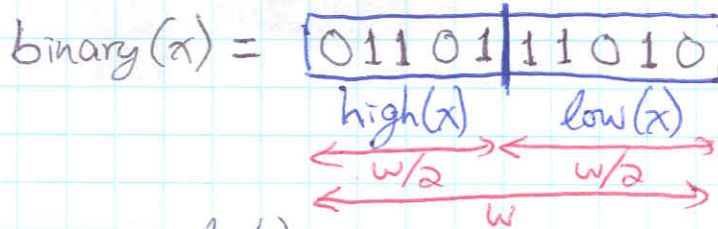 binary(x) = 0110111010
high(x) low(x)
w/2 w/2
w